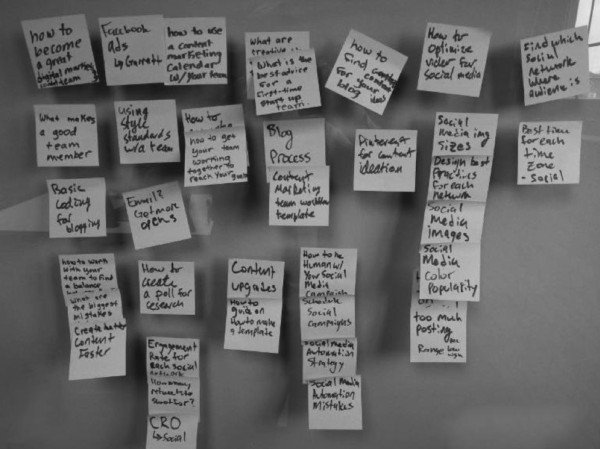 how to
become
a great
digital marketing
team
Facebook
ads
↳Garrett
how to use
a content
marketing
Calendar
w/your team
What are
creative
What is the
best advice
for a
first-time
start up
team.
how to
find
content
for your
blog
How to
Optimize
video for
social media
Find which
Social
network
where
audience is
What makes
a good
team
member
Using
Style
Standards
w/a team
How to
how to get
your team
working
together to
reach your goals
Blog
Process
Content
Marketing
team workflow
template
Pinterest
for content
ideation
Social
Media img
Sizes
Design best
Practices
for each
network
Social
Media
Images
Social
Media
Color
Popularity
too much
posting
Range
Best time
for each
time
Zone
- Social
Basic
Coding
for blogging
Email?
Get more
opens
how to work
with your
team to find
a balance
What are
the biggest
mistakes
Create better
Content
Faster
How to
create
a poll for
research
Engagement
Rate for
each social
network
How many
retweets to
CRO
↳Social
Content
upgrades
How to
guide on
How to make
a template
How to be
Human w/
Your Social
Media
Campaign
Schedule
Social
Campaigns
Social media
Automation
Strategy
Social Media
Automation
Mistakes